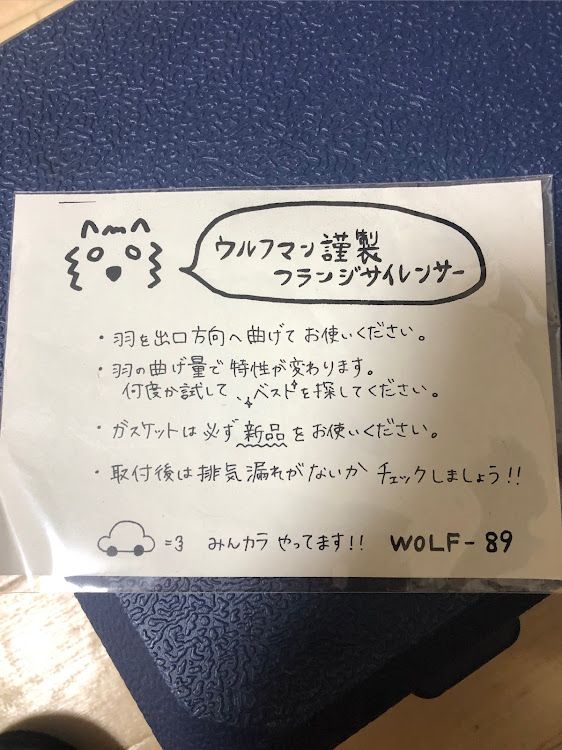 ウルフマン謹製
フランジサイレンサー
・羽を出口方向へ曲げてお使いください。
・羽の曲げ量で特性が変わります。
何度か試して、ベストを探してください。
・ガスケットは必ず新品をお使いください。
・取付後は排気漏れがないかチェックしましょう!!
=3 みんカラやってます!! WOLF-89